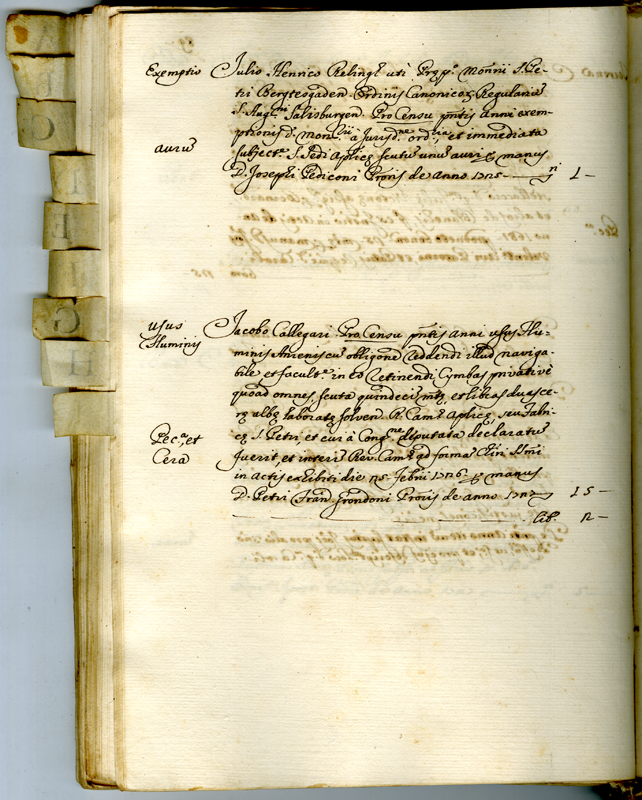 Exemptio
Julio Henrico Relingl uti Prõp.º Monrii S. Pe-
tri Bergtesgaden Ordinis Canonicoꝝ Regularium
S. Aug.ni Salisburgen. Pro Censu pñtis anni exem-
ptionis d. Mon.rii à Jurisd.ne ord.ria, et immediatæ
aurũ
subject.s S. Sedi Aplicæ scutũ unũ auri ꝑ manus
D. Josephi Pediconi Provis de anno 1725 — 1 —
Usus
Fluminis
Jacobo Callegari Pro Censu pñtis anni usus Flu-
minis Anienis cũ obligõne reddendi illud naviga-
bile et facult.e in eo retinendi Cymbas privativè
quoad omnes, scuta quindecim mtæ, et libras duas ce-
ræ albæ laboratæ solven. R. Cam.æ Aplicæ, seu Fabri-
Pec.a et
Cera
cæ S. Petri, et cui à Cong.ne deputata declaratũ
fuerit, et interim Rev. Cam.æ ad formã Chiri SSmi
in actis exhibiti die 15 Febrii 1726. ꝑ manus
D. Petri Fran. Grondoni Provis de anno 1727 15 —
lib. 2 —